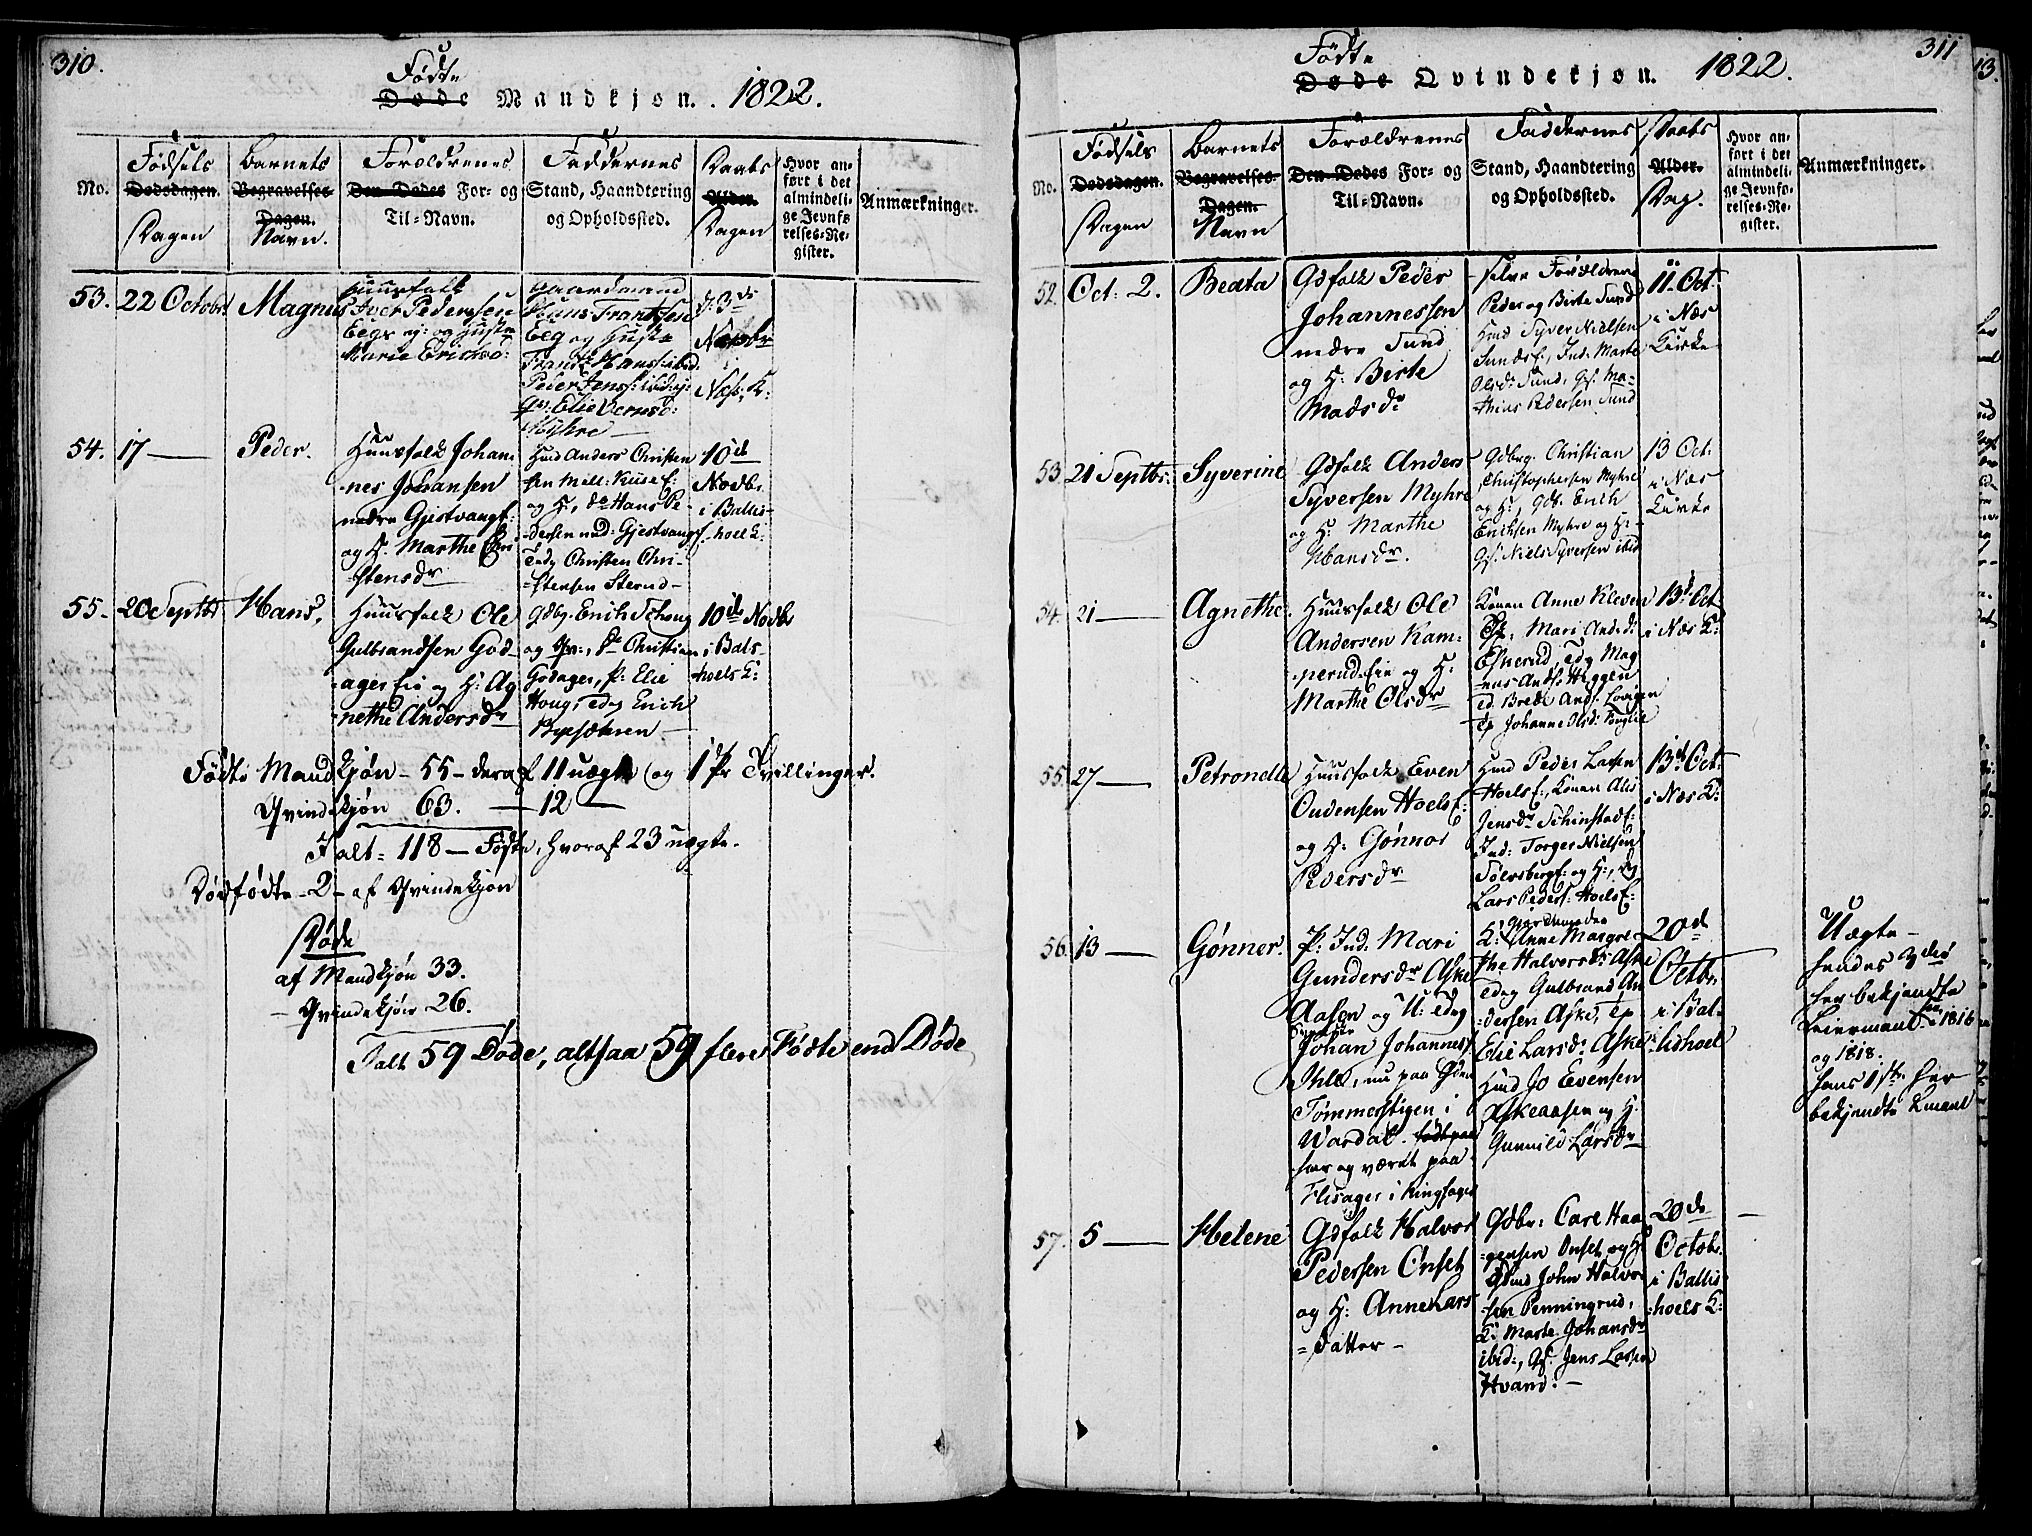 310.
Fødte
Døde Mandkjøn. 1822.
No.
Fødsels
Dødsdagen.
Dagen
Barnets
Begravelses
Dagen.
Navn.
Forældrenes
Den Dødes For- og
Til-Navn.
Faddernes
Stand, Haandtering
og Opholdssted.
Daabs
Alder.
Dagen
Hvor an-
ført i det
almindeli-
ge Jevnfø
relses-Re-
gister.
Anmærkninger.
53. 22 Octobr. Magnus
Huusfolk
Iver Pedersen
Gaardmand
Hans Frantsen
Eeg og Hustr
Peder Jens
Myhre
d: 3de
Novbr
i
Næs K:
54. 17 — Peder.
Huusfolk Johan
nes Johansen
nedre Gjestvang
og H. Marthe Chri
stensdr
Huusd Anders Christen
og H, do Hans Pe-
dersen ned: Gjestvang
Tndg Christen Chri-
stensen Sterud-
10de
Novbr
i Ballis-
hoel K:
55. 20 Septbr Hans.
Huusfolk Ole
Gulbrandsen God-
ager Eie og H: Ag
nethe Andersdr
Gdbg. Erich Schoug
og Qv:, do Christian
Godager, P: Elie
Houg, Tdg Erich
10de Novbr
i Bals-
hoels K:
Fødte Mandkjøn - 55 - deraf 11 uægte og 1 Pr Tvillinger.
Qvindekjøn 63. — 12 —
I alt = 118 — Fødte, hvoraf 23 uægte.
Dødfødte - 2 - af Qvindekjøn
Døde
af Mandkjøn 33.
- Qvindekjøn 26.
I alt 59 Døde, altsaa 59 flere Fødte end Døde
311
Fødte
Døde Qvindekjøn. 1822.
No.
Fødsels
Dødsdagen.
Dagen
Barnets
Begravelses-
Dagen.
Navn
Forældrenes
Den Dødes For- og
Til-Navn.
Faddernes
Stand, Haandtering
og Opholdssted.
Daabs
Alder.
Dag.
Hvor an-
ført i det
almindeli-
ge Jevnfø-
relses-Re-
gister.
Anmærkninger.
52. Oct: 2. Beata
Gdfolk Peder
Johannessen
nedre Sund
og H: Birte
Madsdr
selve Forældrene
Peder og Birte Sund
Huusd Syver Nielsen
Olsdr Sund, Gf: Ma-
thias Pedersen Sund
11. Oct.
i Næs
Kirke
53. 21 Septbr. Syverine
Gdfolk Anders
Syversen Myhre
og H: Marthe
Hansdr.
Gdbrg. Christian
Christophersen Myhre
og H:, Gdb: Erich
Erichsen Myhre og H:
Gf. Niels Syversen ibid
13 Oct.
i Næs
Kirke
54. 21 — Agnethe
Huusfolk Ole
Andersen Kam-
perud Eie og H:
Marthe Olsdr
Konen Anne Kleven
Mari Andsdr
Tdg Mag
nus Ands: Heggen
13d Oct
i Næs K:
55. 27 — Petronelle
Huusfolk Even
Oudensen Hoels E:
og H: Gønnor
Pedersdr
Huusd Peder Larsen
Hoels E:, Konen Alis
Jensdr Schinstad E:
Ind: Torger Nielsen
og H:, Tdg
Lars Peders: Hoels E:
13d Oct.
i Næs K:
56. 13 — Gønner.
P: Ind. Mari
Gundersdr Aske
og U: Tdg
Johan Johannes
Ihle, nu paa
Tømmerstigen i
Wardal. født paa
har og været paa
Flisager i Ringsager
K: Anne Margre-
the Halvorsdr Aske
Tdg Gulbrand An
dersen Aske, Tp
Elie Larsdr Aske
Huusd Jo Evensen
Askeausen og H.
Gunnild Larsdr
20d
Octbr.
i Bal-
lishoel
Uægte -
hendes 3die
her bekjendte
Leiermaal i 1816
og 1818.
hans 1ste her
bekjendte Lmaal
57. 5 — Helene
Gdfolk Halvor
Pedersen Onset
og H: Anne Lars-
Datter -
Gdbr: Carl Haa
gensen Onset og H:
Huusd John Halvor
sen Penningrud,
K: Marte Johansdr
ibid:, Gf: Jens Larsen
Hvand: -
20de
Octobr.
i Ballis
hoels K: